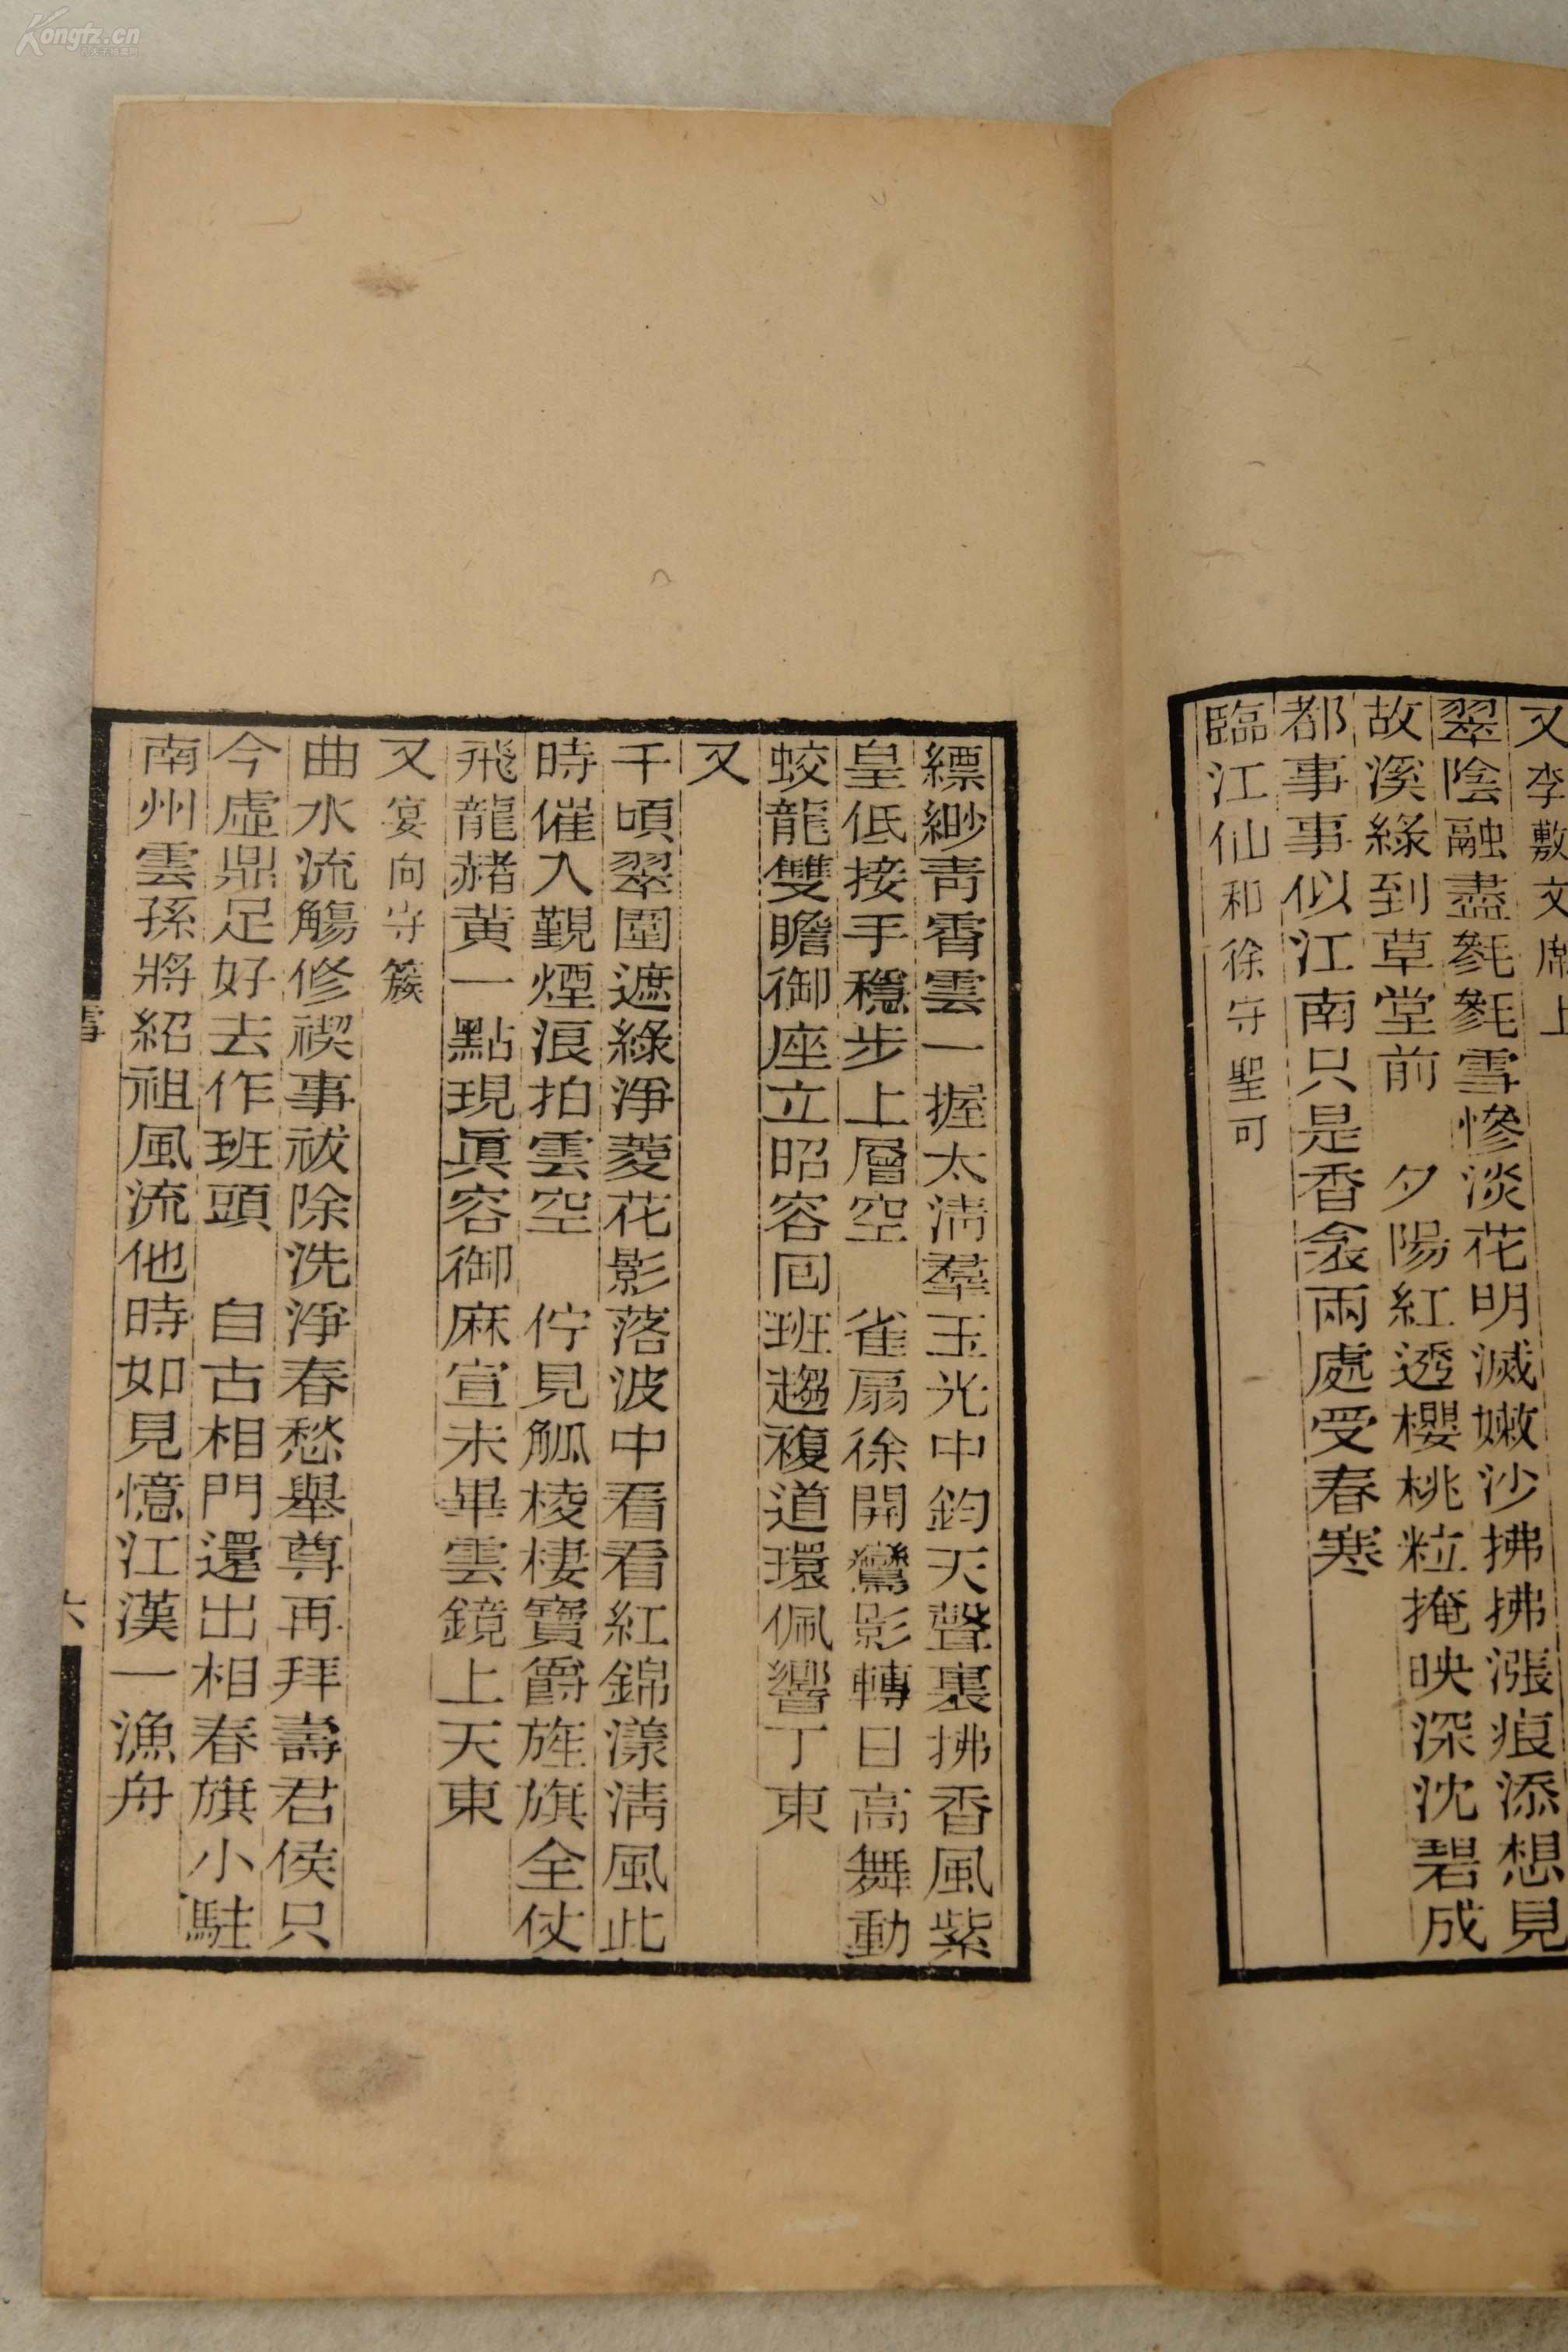 又李敷文席上
翠陰融盡毿毿雪慘淡花明滅嫩沙拂拂漲痕添想見
故溪綠到草堂前　夕陽紅透櫻桃粒掩映深沈碧成
都事事似江南只是香衾兩處受春寒
臨江仙和徐守聖可
縹緲青霄雲一握太淸羣玉光中鈞天聲裏拂香風紫
皇低接手穩步上層空　雀扇徐開鸞影轉日高舞動
蛟龍雙瞻御座立昭容囘班趨複道環佩響丁東
又
千頃翠圍遮綠淨菱花影落波中看看紅錦漾淸風此
時催入覲煙浪拍雲空　佇見觚棱棲寶爵旌旗全仗
飛龍赭黃一點現眞容御麻宣未畢雲鏡上天東
又宴向守簇
曲水流觴修禊事祓除洗淨春愁舉尊再拜壽君侯只
今虛鼎足好去作班頭　自古相門還出相春旗小駐
南州雲孫將紹祖風流他時如見憶江漢一漁舟
六
Kongfz.cn